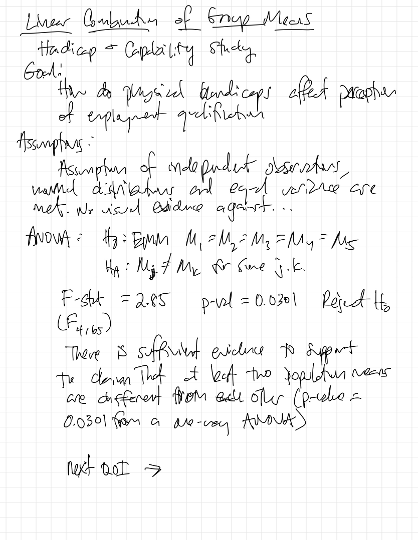 Linear Combination of Group Means
Hadicap & Capability Study
Goal:
How do physical handicaps affect perception
of employment qualification
Assumptions:
Assumption of independent observations,
normal distributions and equal variance are
met. No visual evidence against...
ANOVA: H0: M1 = M2 = M3 = M4 = M5
HA: Mj ≠ Mk for some j,k.
F-stat = 2.85 p-val = 0.0301 Reject H0
(F4,65)
There is sufficient evidence to support
the claim that at least two population means
are different from other (p-value =
0.0301 from a one-way ANOVA)
next QOI →